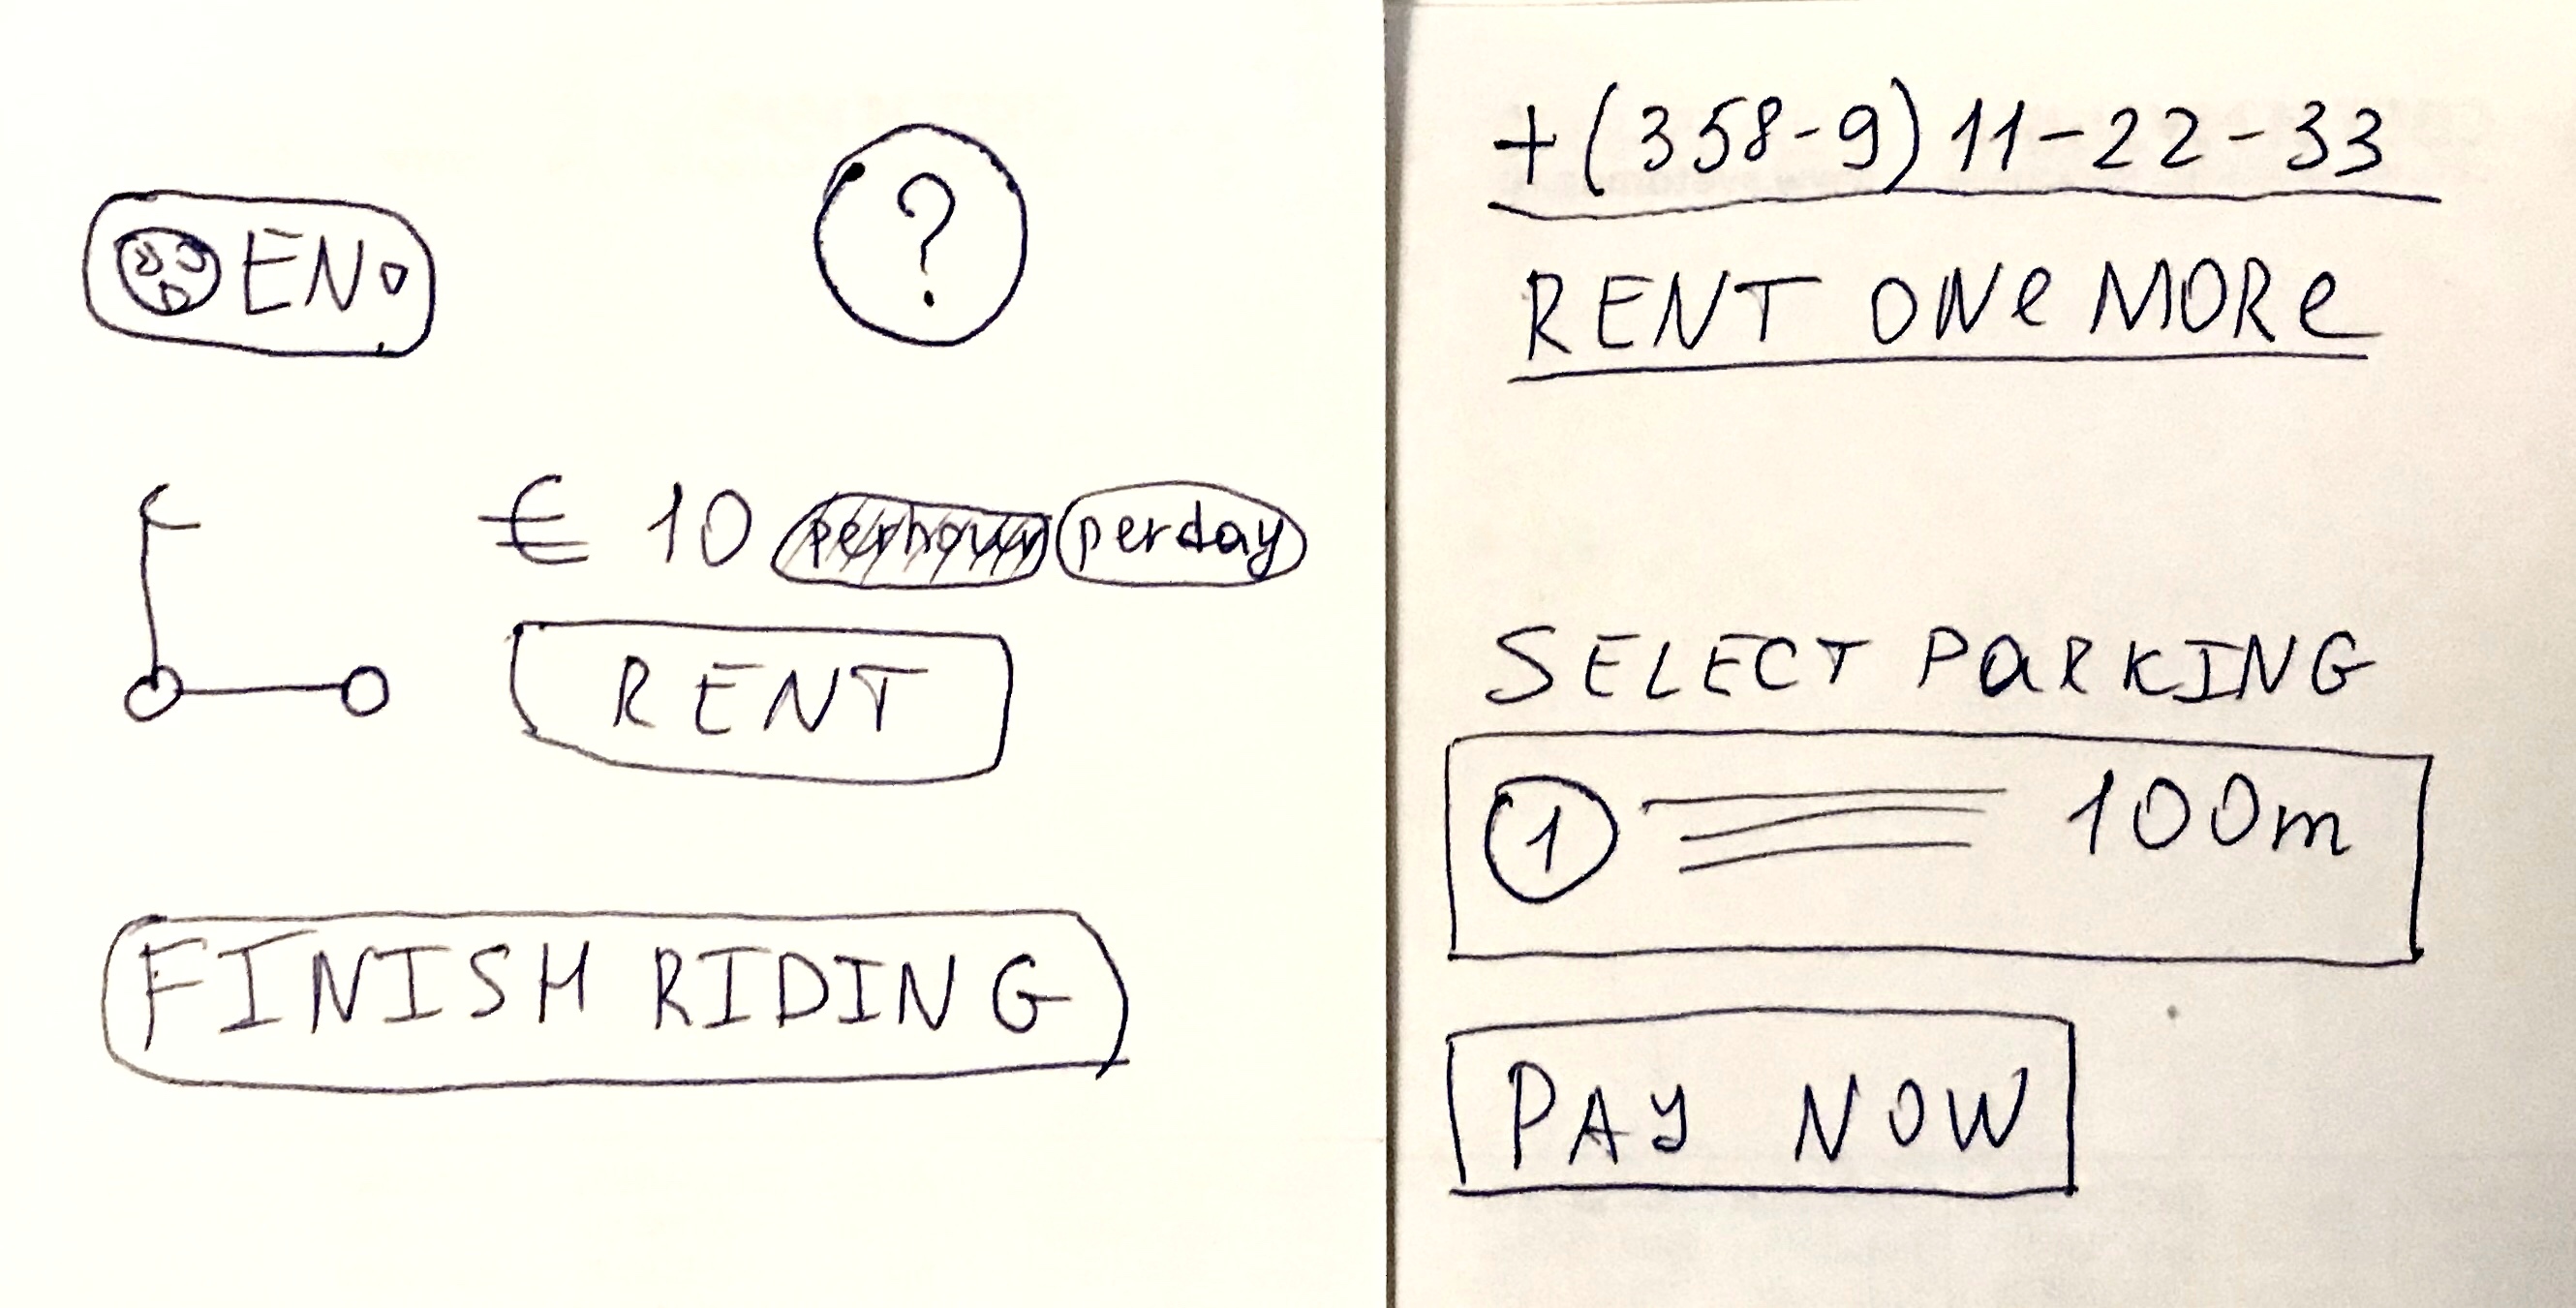 EN
?
€ 10 per hour per day
RENT
FINISH RIDING
+(358-9) 11-22-33
RENT ONe MORe
SELECT PaRKING
1 100m
PAY NOW